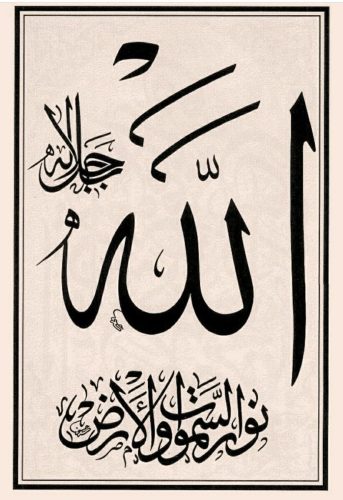 الله
جل جلاله
نور السموات والأرض